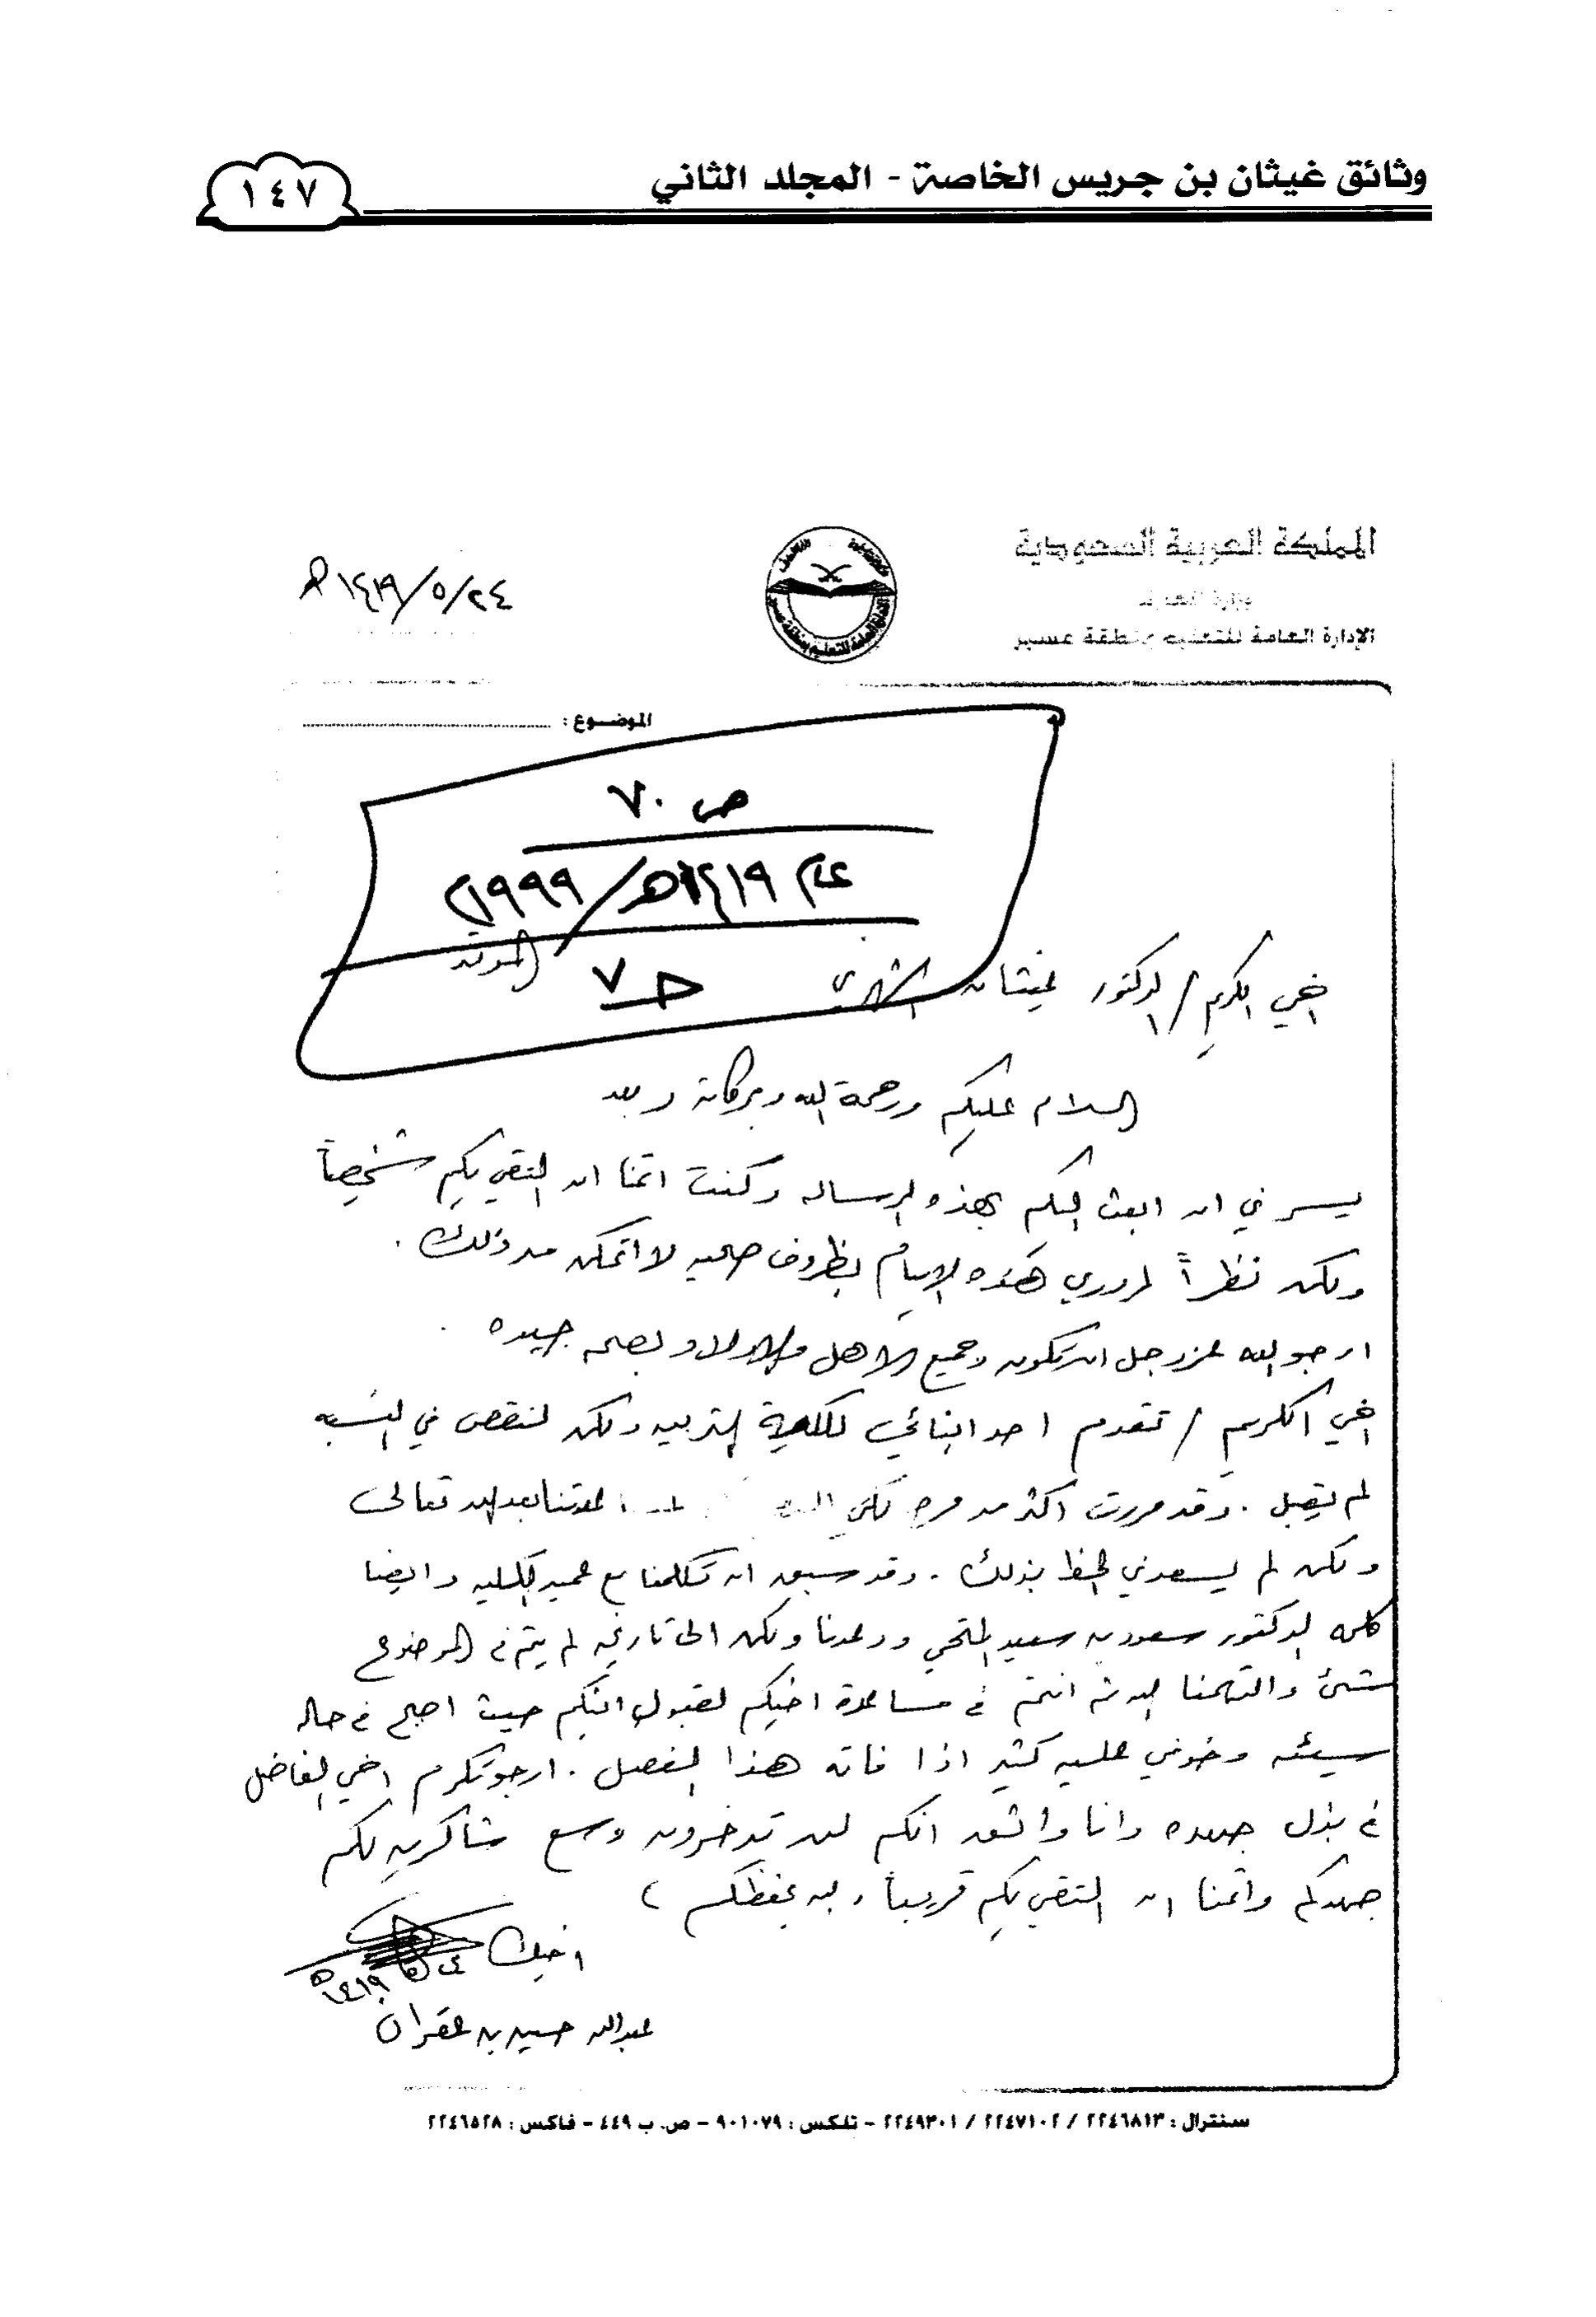 وثائق غيثان بن جريس الخاصة - المجلد الثاني
١٤٧
المملكة العربية السعودية
وزارة المعارف
الإدارة العامة للتعليم بمنطقة عسير
٢٤/٥/١٤١٩هـ
الموضوع:
ص ٧٠
عام ١٤١٩هـ/١٩٩٩م
ج ٧
اخي الكريم / الدكتور غيثان الشهري الموقر
السلام عليكم ورحمة الله وبركاته وبعد
يسرني ان ابعث اليكم بهذه الرساله وكنت اتمنا ان التقي بكم شخصياً
ولكن نظراً لمروري هذه الايام بظروف صحيه لا اتمكن من ذلك .
ارجو الله عزوجل ان تكون وجميع الاهل والاولاد بصحه جيده .
اخي الكريم / تقدم احد ابنائي لكلية التربيه ولكن لنقص في النسبه
لم يقبل . وقد مررت اكثر من مره لكي بعد الله تعالى
ولكن لم يسعدني الحظ بذلك . وقد سبق ان تكلمنا مع عميد الكليه وايضا
كلمه الدكتور سعود بن سعيد المتحمي ووعدنا ولكن الى تاريخه لم يتم في الموضوع
شئ والتهمنا الله ثم انتم في مساعدة اخيكم لقبول ابنكم حيث اصبح في حاله
سيئه وخوفي عليه كثير اذا فاته هذا الفصل . ارجو تكرم اخي الفاضل
في بذل جهده وانا واثق انكم لن تدخرون وسع شاكرين لكم
جهدكم واتمنا ان التقي بكم قريباً والله يحفظكم ،
اخيك
٢٤/٥/١٤١٩هـ
عبدالله حسين بن عقران
سنترال : ٢٢٤٦٨١٣ / ٢٢٤٧١٠٢ / ٢٢٤٩٣٠١ – تلكس : ٩٠١٠٧٩ – ص.ب ٤٤٩ – فاكس : ٢٢٤٦٥٢٨